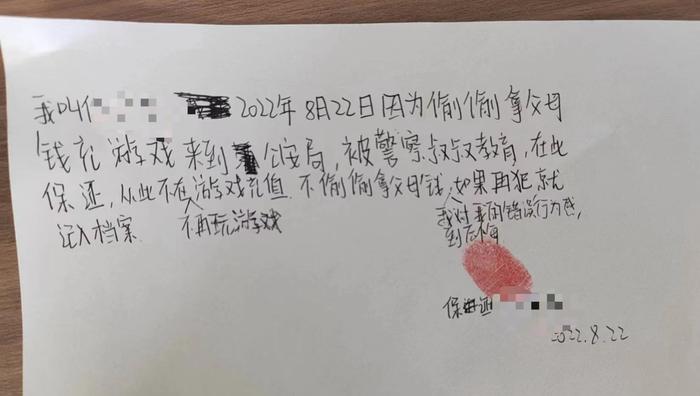 我叫 2022年8月22日因为偷偷拿父母
钱充游戏来到公安局，被警察叔叔教育，在此
保证，从此不在游戏充值．不偷偷拿父母钱，如果再犯就
记入档案．不再玩游戏
我对我的错误行为感
到后悔
保证
2022.8.22